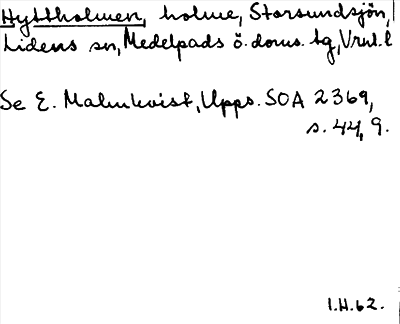 Hyttholmen, holme, Storsundsjön,
Lidens sn, Medelpads ö. doms. tg, Vrnl. l
Se E. Malmkvist, Upps. SOA 2369,
s. 44, 9.
I.H.62.